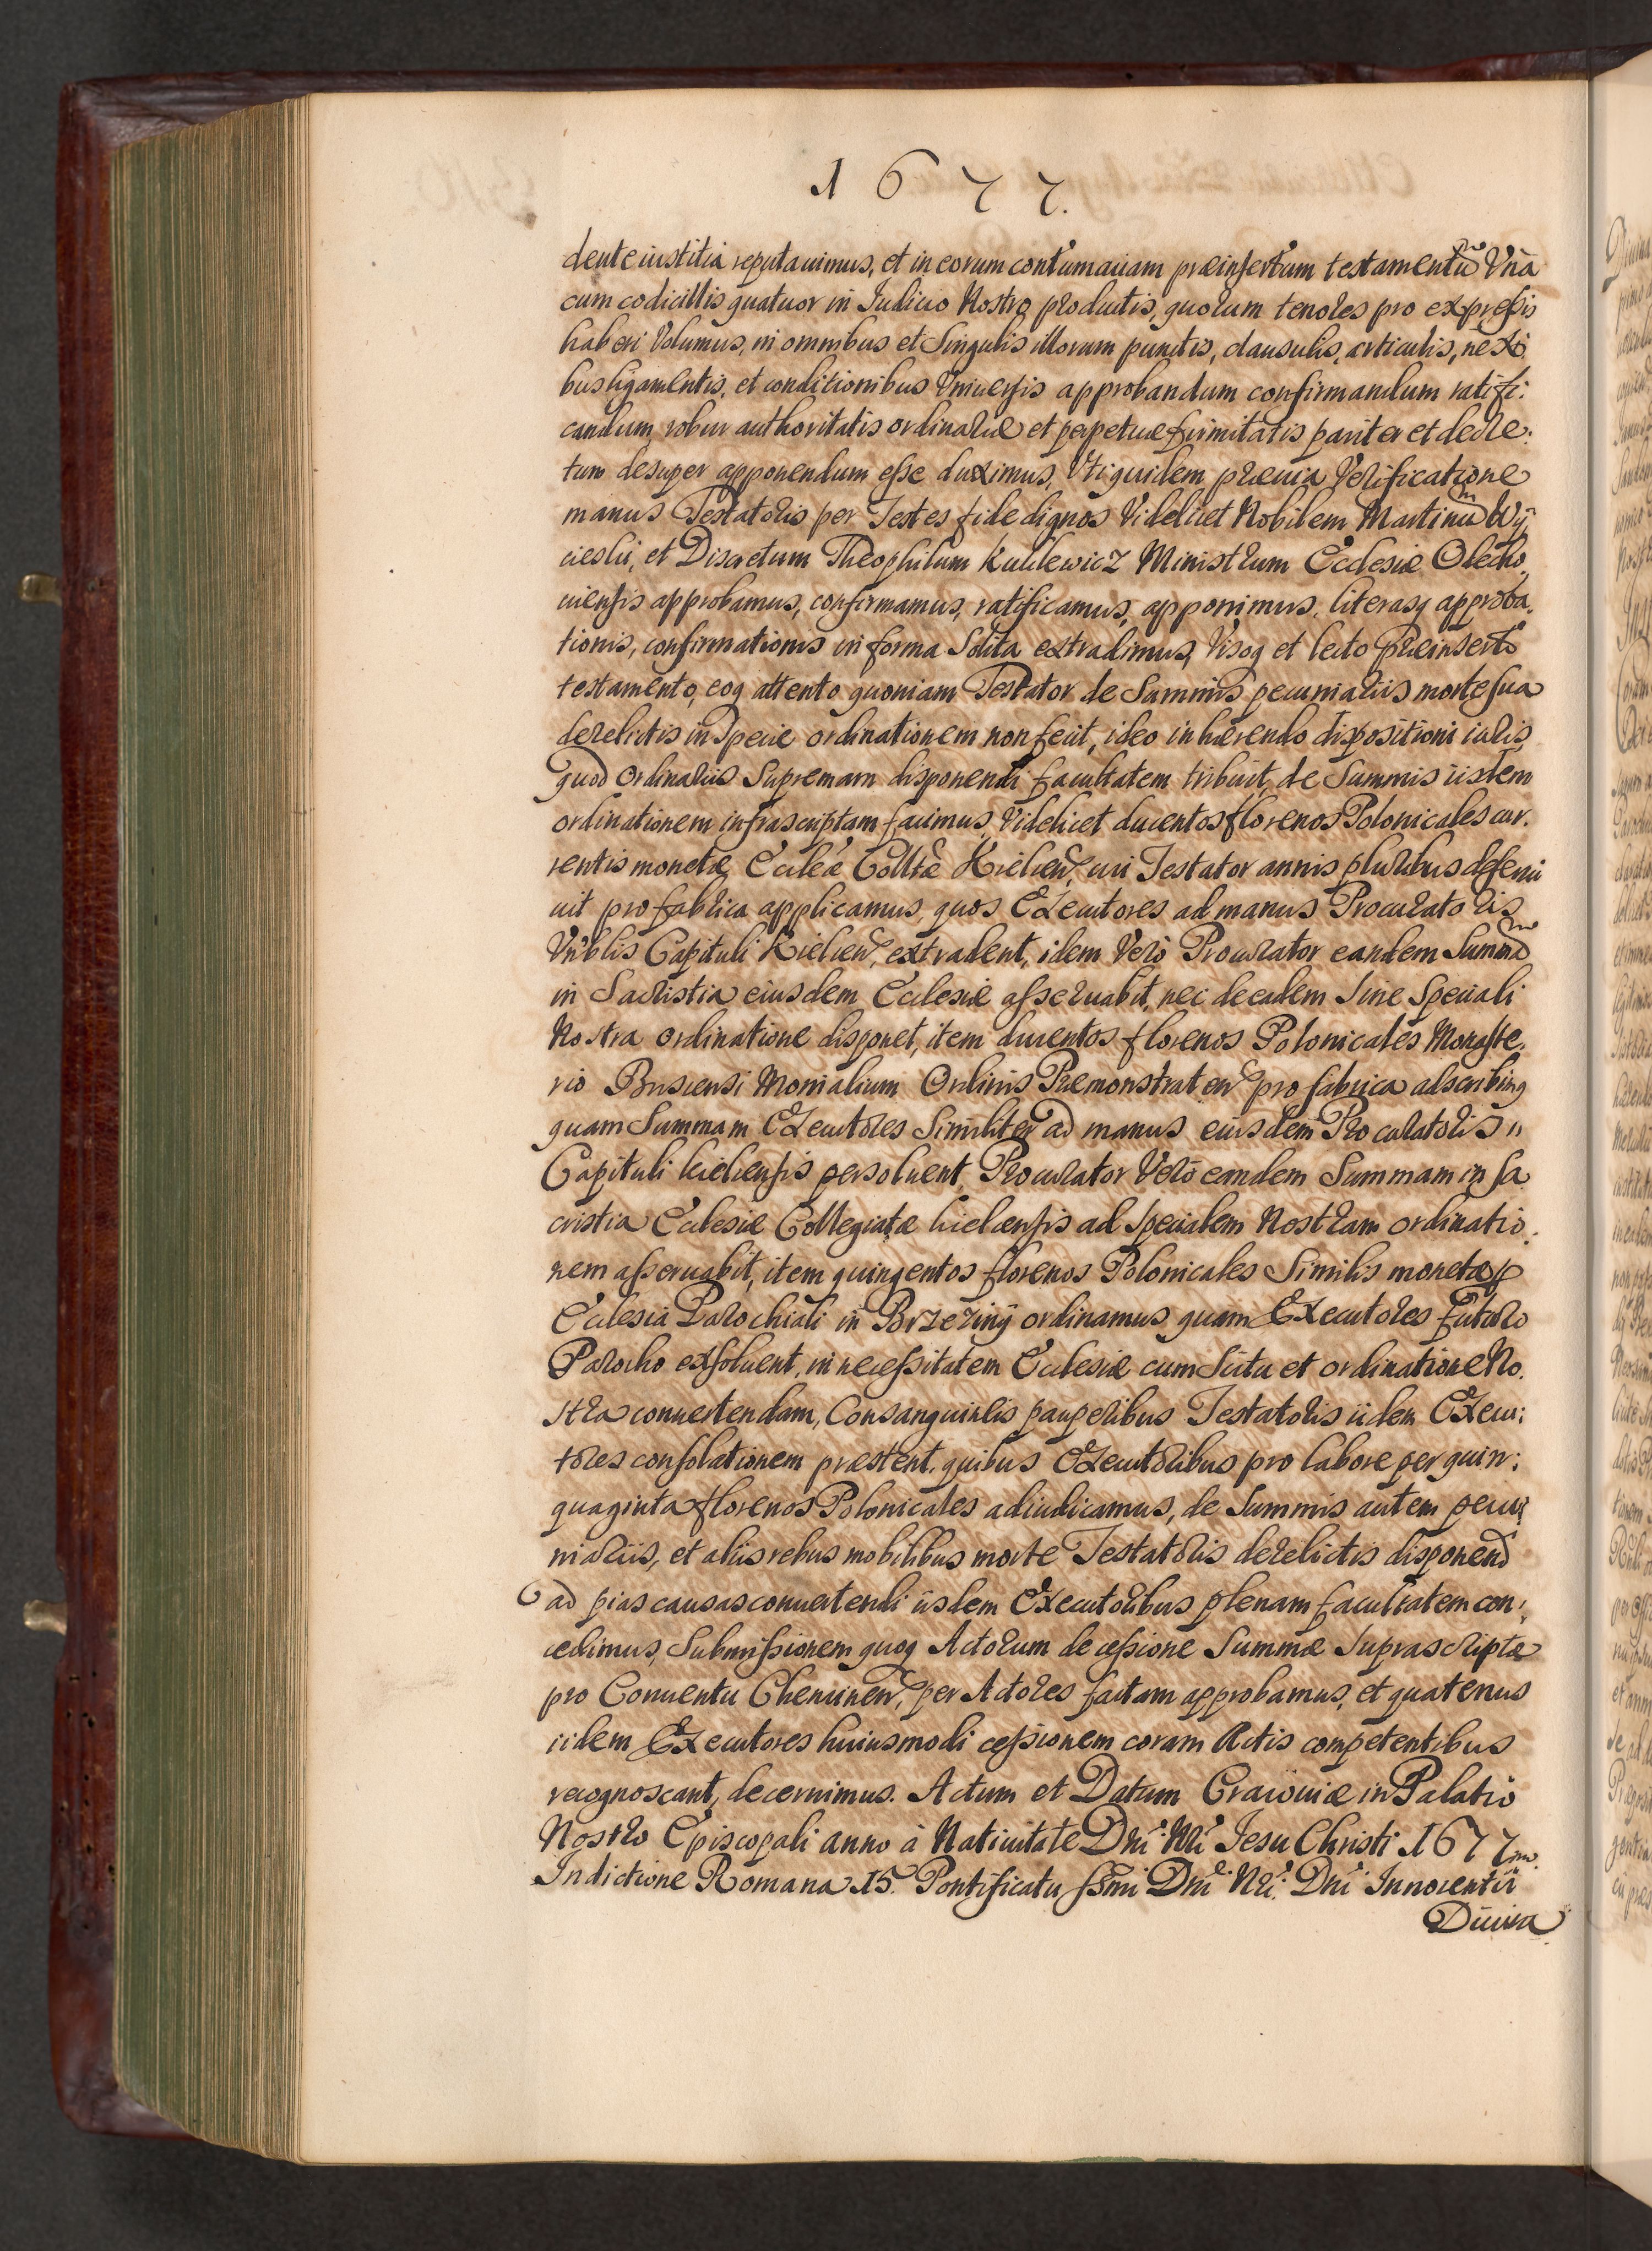 1677.
dente iustitia reputauimus, et in eorum contumaciam præinsertum testamentũ Vnà
cum codicillis quatuor in Iudicio Nostro productis, quorum tenores pro expressis
haberi Volumus, in omnibus et Singulis illorum punctis, clausulis, articulis, nexi:
bus ligamentis, et conditionibus Vniuersis approbandum confirmandum ratifi:
candum, robur authoritatis ordinariæ et perpetuæ firmitatis pariter et decre:
tum desuper apponendum esse duximus, Vti quidem præuia Verificatione
manus Testatoris per Testes fide dignos Videlicet Nobilem Martinũ Wy
cieslii, et Discretum Theophilum Kulilewicz Ministrum Ecclesiæ Olecho,
uiensis approbamus, confirmamus, ratificamus, apponimus, literasq approba,
tionis, confirmationis in forma Solita extradimus, Visoq et lecto Præinserto
testamento, eoq attento quoniam Testator de Summis pecuniariis morte sua
derelictis in Specie ordinationem non fecit, ideo inhærendo dispositioni iuris,
quod Ordinariis Supremam disponendi facultatem tribuit, de Summis iisdem
ordinationem infrascriptam facimus, Videlicet ducentos florenos Polonicales cur.
rentis monetæ Eccleæ Colltæ Kielcen, cui Testator annis pluribus deserui
uit pro fabrica applicamus, quos Executores ad manus Procuratoris
Vnblis Capituli Kielcen, extradent, idem Verò Procurator eandem Summã
in Sacristia eiusdem Ecclesiæ asseruabit, nec de eadem Sine Speciali
Nostra ordinatione disponet, item ducentos florenos Polonicales Monaste.
rio Buscensi Monialium Ordinis Præmonstraten pro fabrica adscribimq
quam Summam Executores Similiter ad manus eiusdem Procuratoris
Capituli kielcensis persoluent, Procurator Verò eandem Summam in Sa
cristia Ecclesiæ Collegiatæ kielcensis ad Specialem Nostram ordinatio:
nem asseruabit, item quingentos florenos Polonicales Similis monetæ p
Ecclesia Parochiali in Brzeziny ordinamus, quam Executores futuro
Parocho exsoluent, in necessitatem Ecclesiæ cum Scitu et ordinatione No.
stra conuertendam, Consanguineis pauperibus Testatoris iidem Execu:
tores consolationem præstent, quibus Executoribus pro labore per quin:
quaginta florenos Polonicales adiudicamus, de Summis autem pecu:
niariis, et aliis rebus mobilibus morte Testatoris derelictis disponend
ad pias causas conuertendi iisdem Executoribus plenam facultatem con:
cedimus, Submissionem quoq Actorum de cessione Summæ Suprascriptæ
pro Conuentu Checinen, per Actores factam approbamus, et quatenus
iidem Executores huiusmodi cessionem coram Actis competentibus
recognoscant, decernimus. Actum et Datum Cracouiæ in Palatio
Nostro Episcopali anno à Natiuitate Dni Nri Iesu Christi 1677mo
Indictione Romana 15. Pontificatu SSmi Dni Nri Dni Innocentii
Diuina